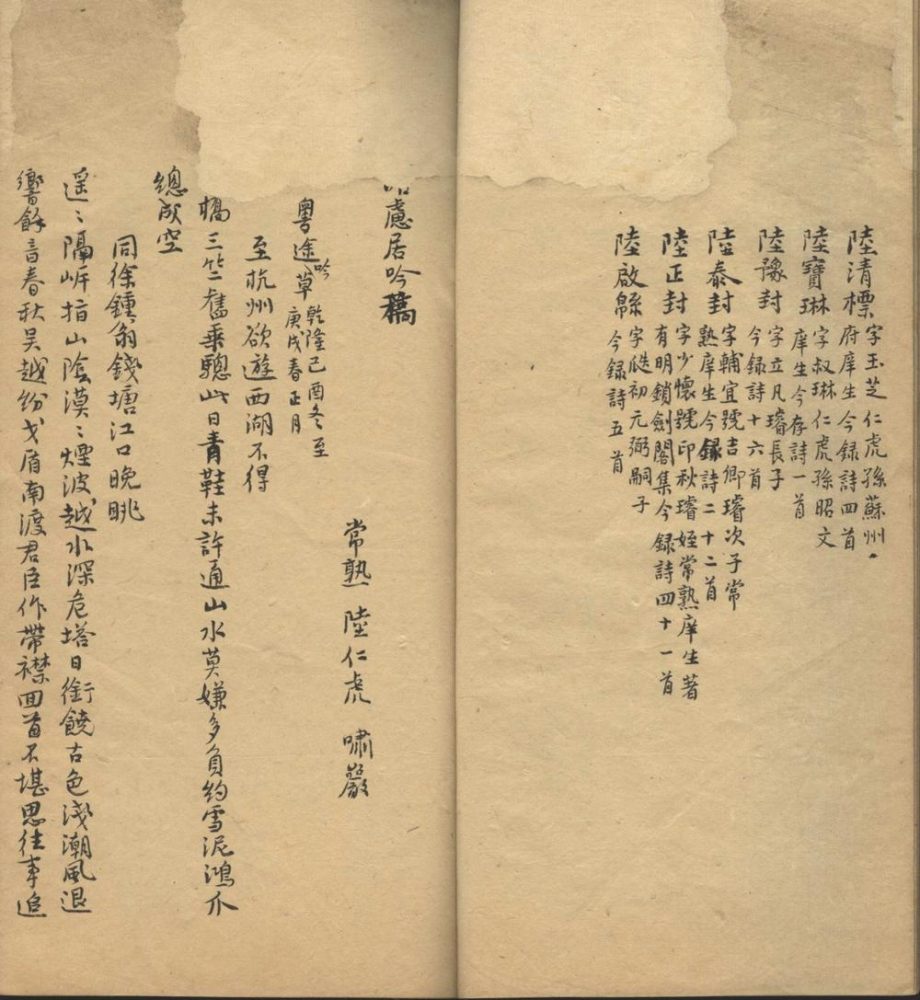 陸清標 字玉芝仁虎孫蘇州
府庠生今録詩四首
陸寶琳 字叔琳仁虎孫昭文
庠生今存詩一首
陸豫封 字立凡璿長子
今録詩十六首
陸泰封 字輔宜號吉卿璿次子常
熟庠生今録詩二十二首
陸正封 字少懷號印秋璿姪常熟庠生著
有明鎖劍閣集今録詩四十一首
陸啟緜 字瓞初元弼嗣子
今録詩五首
慮居吟稿
常熟 陸仁虎 嘯巖
粵途吟草 乾隆己酉冬至
庚戌春正月
至杭州欲遊西湖不得
橋三竺舊乗驄此日青鞋未許通山水莫嫌多負約雪泥鴻爪
總成空
同徐鍾翁錢塘江口晚眺
遥〻隔岍指山陰漠〻煙波越水深危塔日銜饒古色淺潮風退
響餘音春秋吴越紛戈盾南渡君臣作帶襟回首不堪思往事追